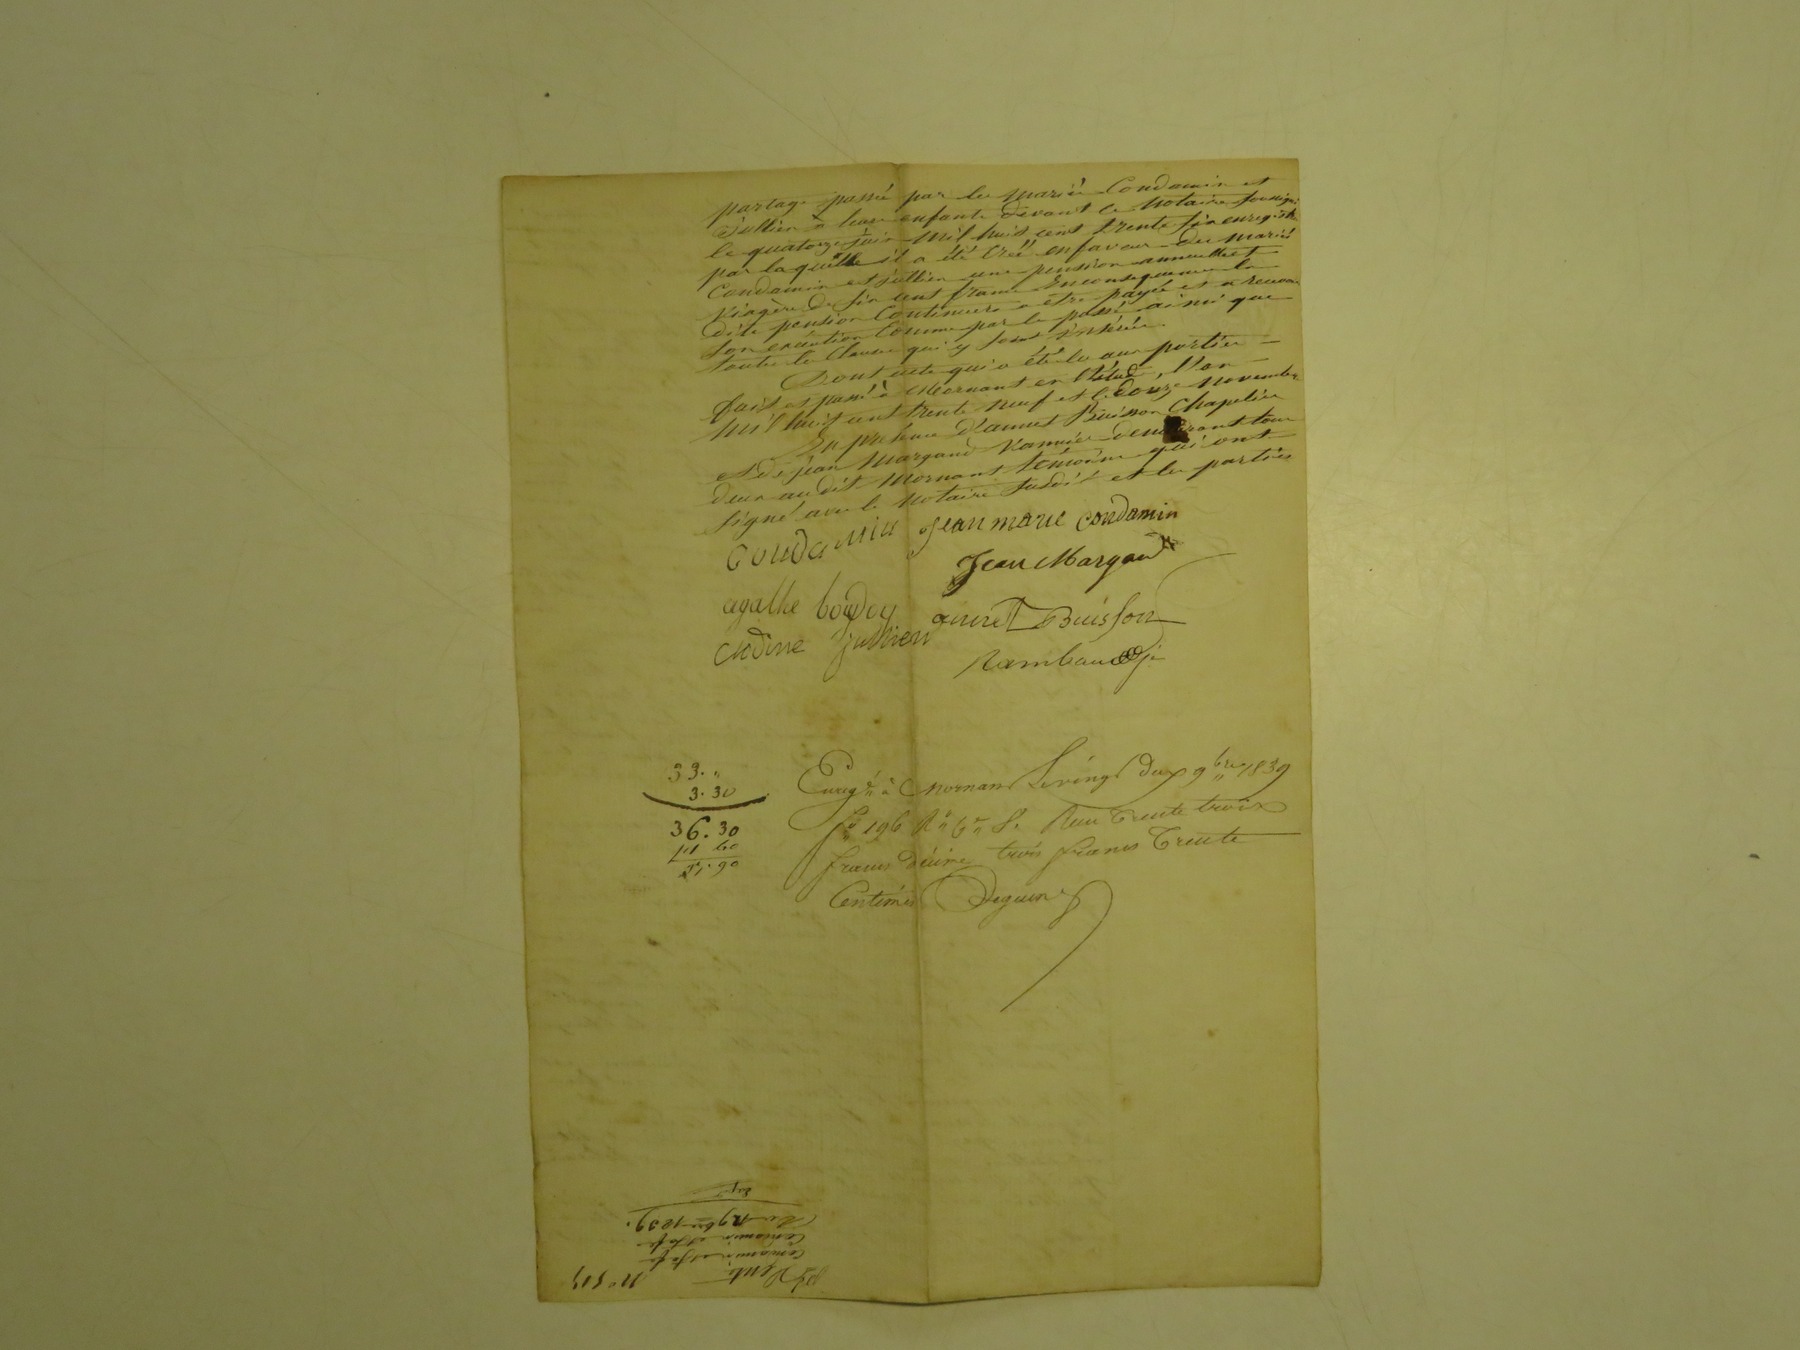 partage passé par les mariés Condamin et
Jullien à leurs enfants devant le Notaire soussigné
le quatorze juin mil huit cent trente six enregistré
par laquelle il a été créé en faveur des mariés
Condamin et jullien une pension annuelle et
viagère de six cent francs En conséquence la
dite pension Continuera a être payée et a recevoir
son exécution Comme par le passé ainsi que
toutes les Clauses qui y sont insérées.
Dont acte qui a été lu aux parties
fait et passé à Mornant en l'étude, l'an
mil huit cent trente neuf et le Douze Novembre
En présence d'annet Buisson Chapelier
et de jean Margand vannier demeurant tous
deux au dit Mornant témoins qui ont
signé avec le Notaire susdit et les parties
Condamin Jean marie Condamin
Jean Margand
agathe boudoy annet Buisson
Clodine jullien
Rambaud
33. "
3. 30
36. 30
1 60
37. 90
Enregé à Mornant Le vingt deux 9bre 1839
fo 196 Ro Reçu trente trois
francs décime trois francs Trente
Centimes
No 513
Vente
Condamin
Condamin
Du 12 9bre 1839.
Exp